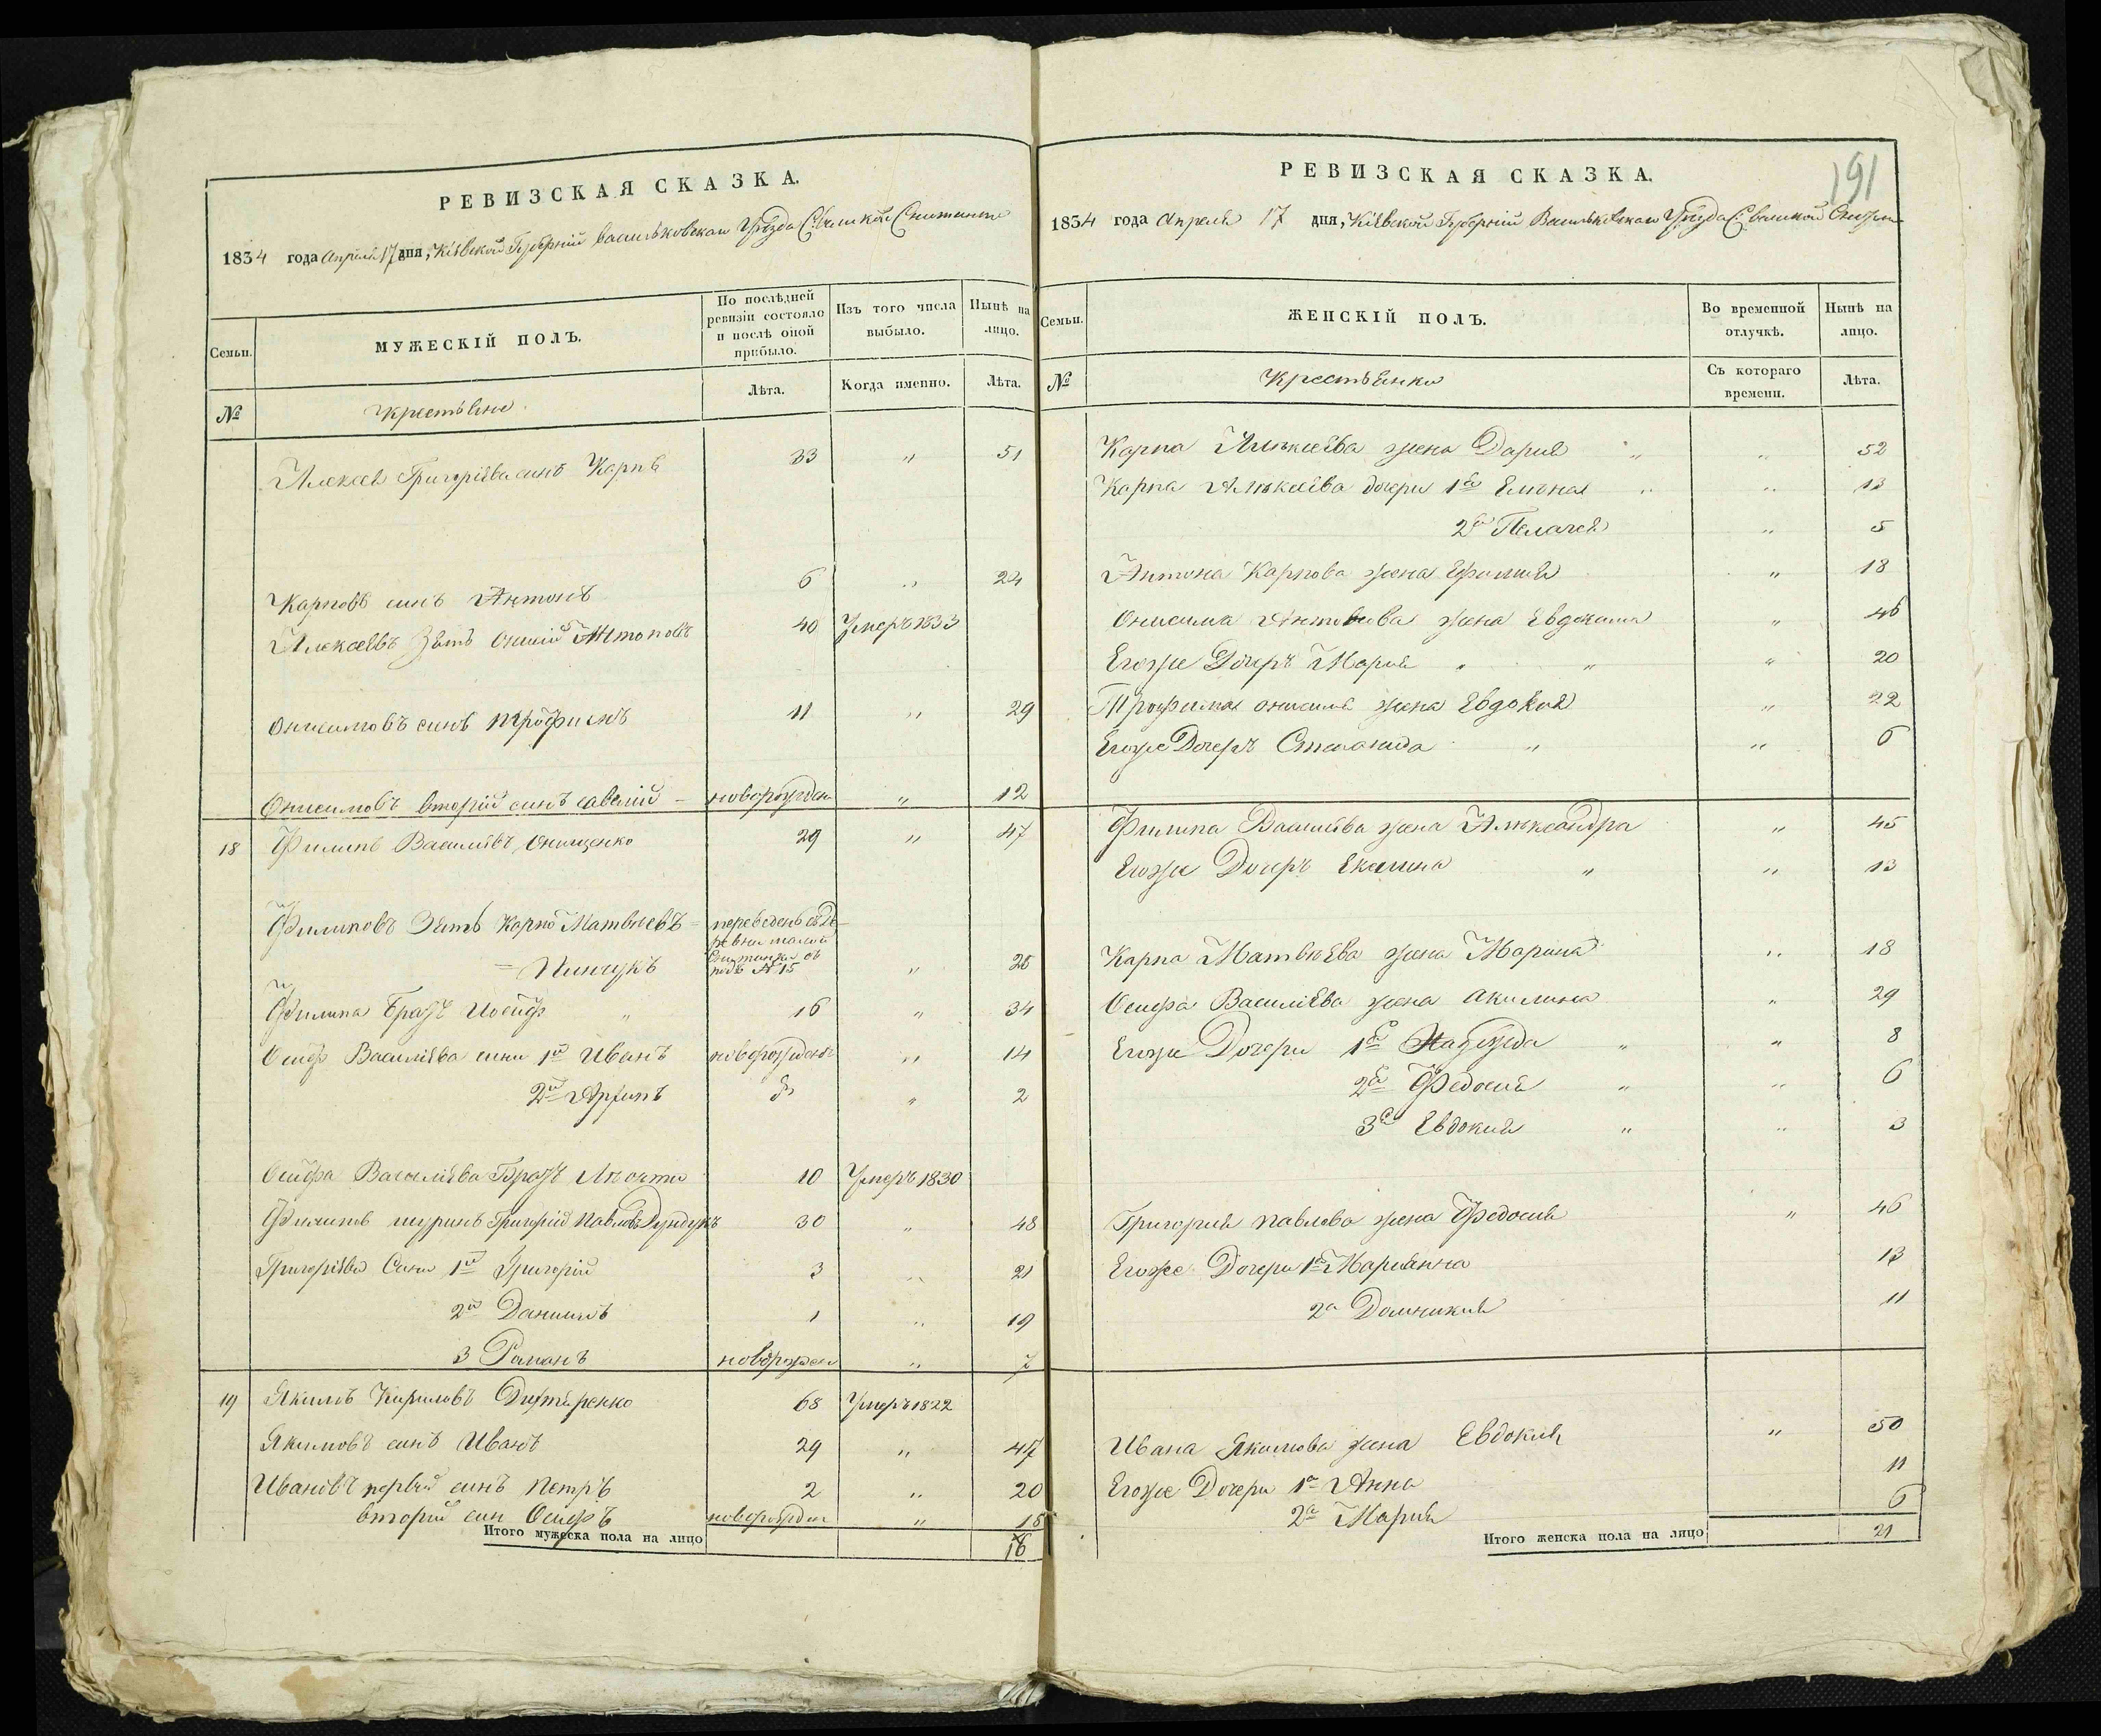 РЕВИЗСКАЯ СКАЗКА.
1834 года Апреля 17 дня, Кіевской Губерніи Васильковскаго Уѣзда С. великой Снитинки
Семьи.
МУЖЕСКІЙ ПОЛЪ.
По послѣдней ревизіи состояло и послѣ оной прибыло.
Изъ того числа выбыло.
Нынѣ на лицо.
№
Крестьяне
Лѣта.
Когда именно.
Лѣта.
Алексея Григоріева синъ Карпъ 33 " 51
Карповъ синъ Антонъ 6 " 24
Алексеевъ Зять Онисій Антоновъ 40 Умеръ 1833
Онисимовъ синъ Трофимъ 11 " 29
Онисимовъ вторій синъ Савелій – новорожден " 12
18 Филипъ Васильевъ Онищенко 29 " 47
Филиповъ Зять Карпо Матвѣевъ = переведенъ съ де-
ревни малой
= Пинчукъ Снитинки съ
подъ № 15 " 26
Филипа Братъ Иосифъ " 16 " 34
Осифа Василіева сини 1й Иванъ новорожденъ " 14
2й Архипъ " 2
Осифа Василіева Братъ 10 Умеръ 1830
Филиповъ шуринъ Григорій Павловъ Дундукъ 30 " 48
Григоріева Сини 1й Григорій 3 " 21
2й Данилъ 1 " 19
3 Романъ новорожден " 7
19 Якимъ Кириловъ 68 Умеръ 1822
Якимовъ синъ Иванъ 29 " 47
Ивановъ первый синъ Петръ 2 " 20
вторий син Осифъ новорожден " 15
Итого мужеска пола на лицо 16
РЕВИЗСКАЯ СКАЗКА.
191
1834 года Апреля 17 дня, Кіевской Губерніи Васильковскаго Уѣзда С. великой
Семьи.
ЖЕНСКІЙ ПОЛЪ.
Во временной отлучкѣ.
Нынѣ на лицо.
№
Крестьянки
Съ котораго времени.
Лѣта.
Карпа Алексеева жена Дарья " " 52
Карпа Алексеева дочери 1я Елена " " 13
2я Пелагея " 5
Антона Карпова жена Ефимия " 18
Онисима Антонова жена Евдокима " 46
Егоже Дочеръ Мария " " " 20
Трофима онисима жена Евдокия " 22
Егоже Дочеръ Степанида " " 6
Филипа Василіева жена Александра " 45
Егоже Дочеръ Екилина " " 13
Карпа Матвѣева жена Марина " 18
Осифа Василіева жена Акилина " 29
Егоже Дочери 1я Надежда " " 8
2я Федосия " " 6
3я Евдокия " " 3
Григория Павлова жена Федосия " 46
Егоже Дочери 1я Марианна 13
2а Домникия 11
Ивана Якимова жена Евдокия " 50
Егоже Дочери 1а Анна 11
2а Мария 6
Итого женска пола на лицо 21